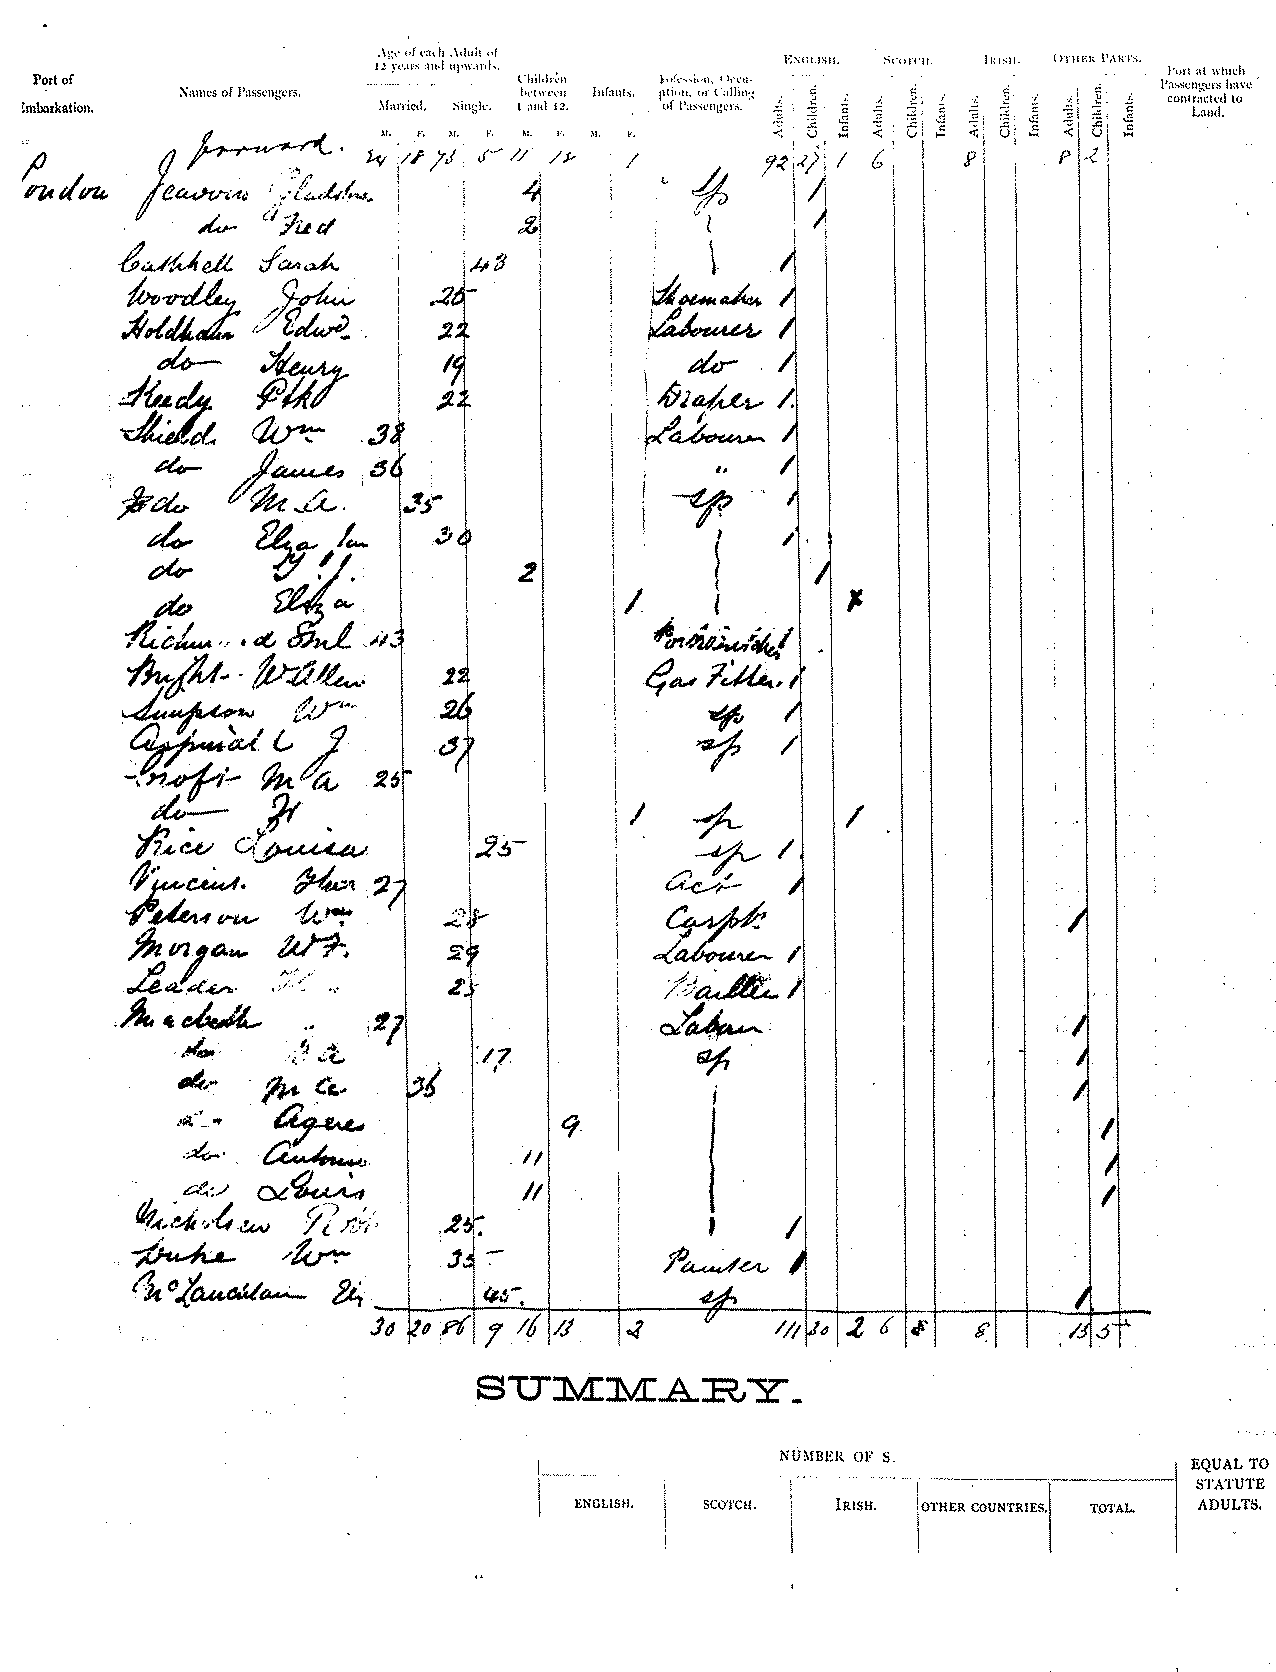 Port of Embarkation. Names of Passengers. Age of each Adult of 12 years and upwards. Married. Single. Children between 1 and 12. Infants. Profession, Occupation, or Calling of Passengers. ENGLISH. SCOTCH. IRISH. OTHER PARTS. Port at which Passengers have contracted to Land.
M. F. M. F. M. F. M. F. Adults. Children. Infants. Adults. Children. Infants. Adults. Children. Infants. Adults. Children. Infants.
forward. 24 18 73 5 11 12 1 92 27 1 6 8 8 2
London Jeavons 4 sp 1
do Fred 2 1
Sarah 43 1
Woodley John 25 Shoemaker 1
Holdham Edwd 22 Labourer 1
do Henry 19 do 1
Keedy 22 Draper 1
Shields Wm 38 Labourer 1
do James 36 " 1
do M A. 35 sp 1
do Eliza 30 1
do 2 1
do Eliza 1 x
43 1
Wallen 22 Gas Fitter. 1
Simpson Wm 26 sp 1
Aspinall J 37 sp 1
Croft M A 25
do H 1 sp 1
Rice Louisa 25 sp 1
Vincent. Thos 27 1
Peterson Wm 28 Carptr 1
Morgan W F. 29 Labourer 1
Leader 25 1
27 Labour 1
do A 17 sp 1
do M A 36 1
Agnes 9 1
do Antonio 11 1
do Louis 11 1
Nicholsen Robt 25. 1
Luke Wm 35 Painter 1
45. sp 1
30 20 86 9 16 13 2 111 30 2 6 8 8 15 5
SUMMARY.
NUMBER OF S.
ENGLISH. SCOTCH. IRISH. OTHER COUNTRIES. TOTAL. EQUAL TO STATUTE ADULTS.